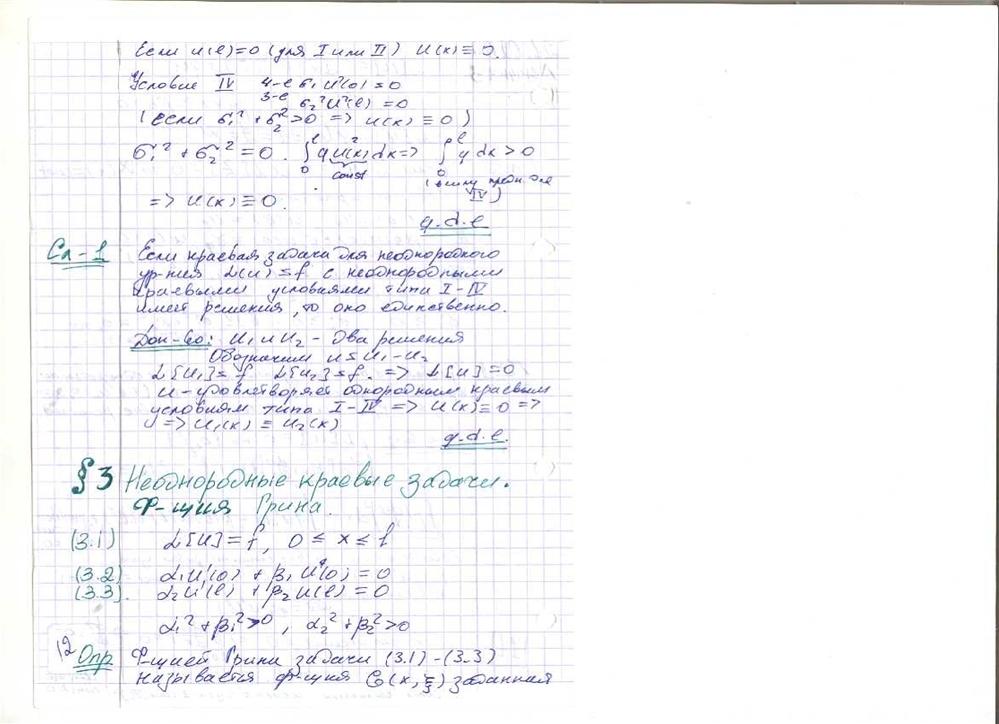 Если u(l)=0 (для I или II) u(x)≡0.
Условие IV 4-е σ₁u(0)=0
3-е σ₂u(l)=0
(если σ₁²+σ₂²>0 => u(x)≡0)
σ₁²+σ₂²=0. ∫₀ˡ q u²(x) dx => ∫₀ˡ q dx>0
const
IV)
=> u(x)≡0.
q.d.e
Сл-1 Если краевая задача для неоднородного
ур-ния L(u)=f с неоднородными
краевыми условиями типа I-IV
имеет решения, то оно единственно.
Док-во: u₁ и u₂ - два решения
Обозначим u=u₁-u₂
L[u₁]=f L[u₂]=f. => L[u]=0
u-удовлетворяет однородным краевым
условиям типа I-IV => u(x)≡0 =>
=> u₁(x)≡u₂(x)
q.d.e.
§3 Неоднородные краевые задачи.
Ф-ция Грина.
(3.1) L[u]=f, 0≤x≤l
(3.2) α₁u'(0)+β₁u(0)=0
(3.3). α₂u'(l)+β₂u(l)=0
α₁²+β₁²>0, α₂²+β₂²>0
12 Опр Ф-цией Грина задачи (3.1)-(3.3)
называется ф-ция G(x,ξ) заданная